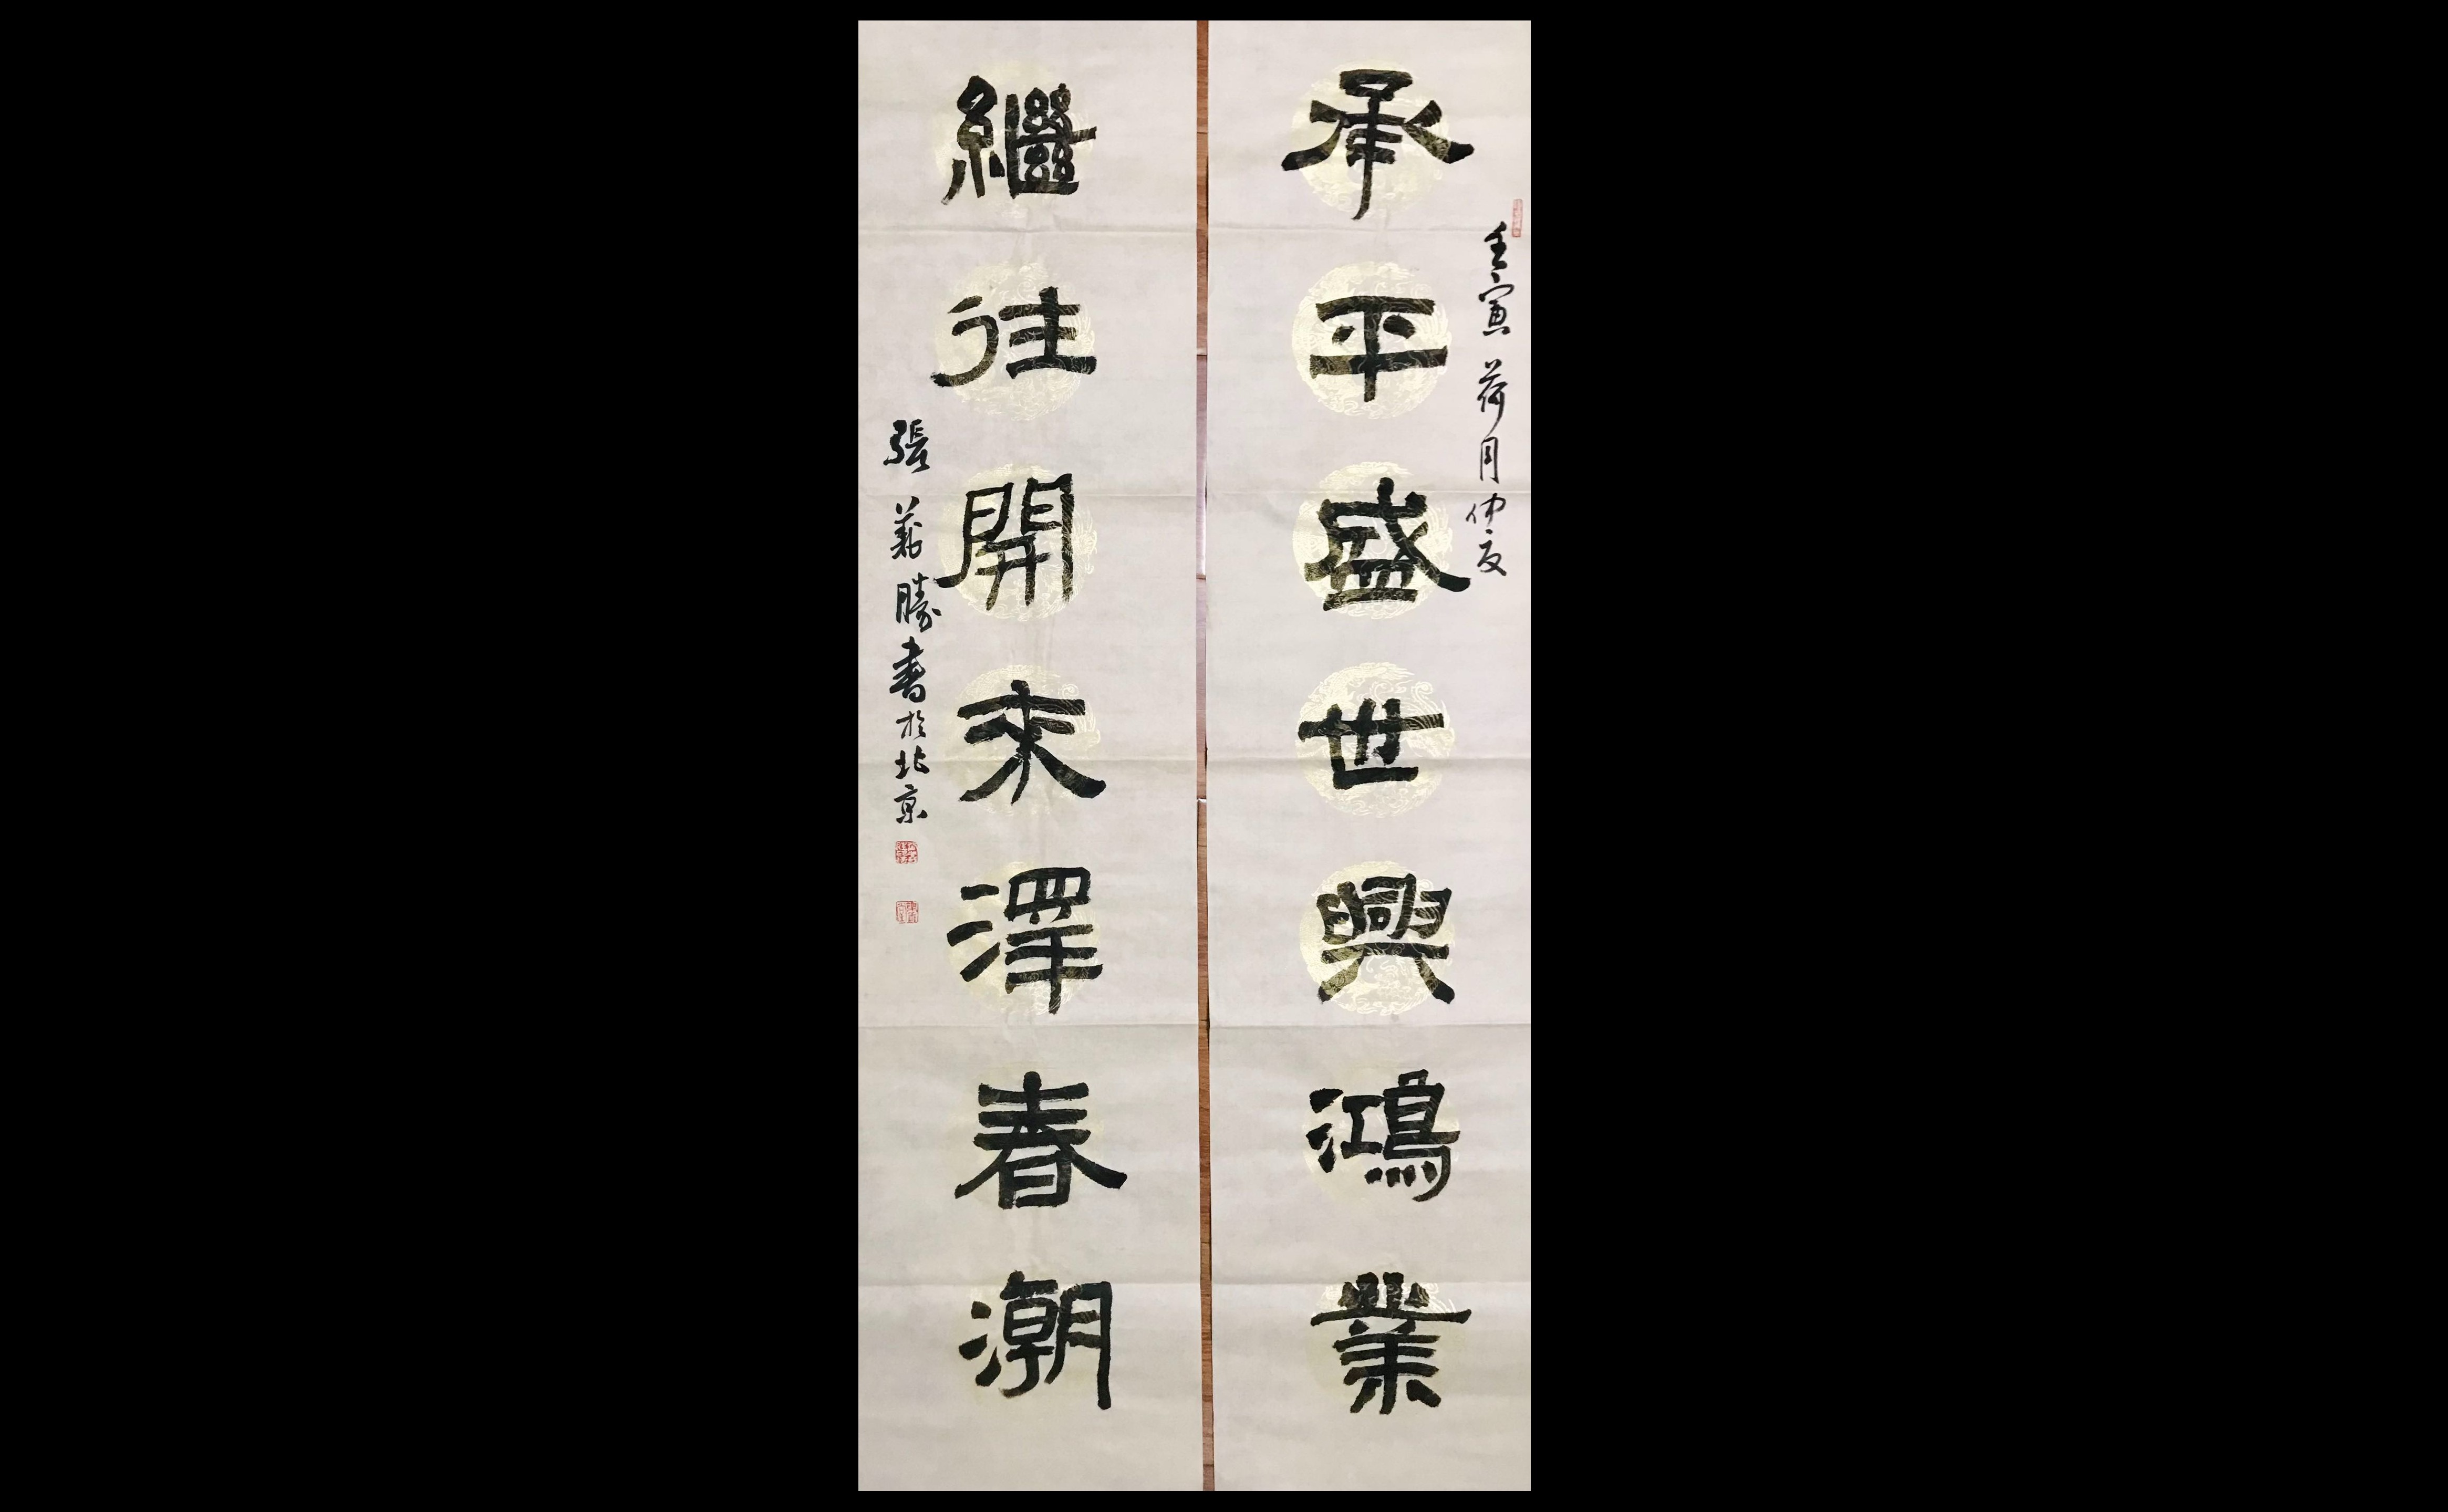 壬寅荷月仲夏
承平盛世興鴻業
繼往開來澤春潮
張義勝書於北京